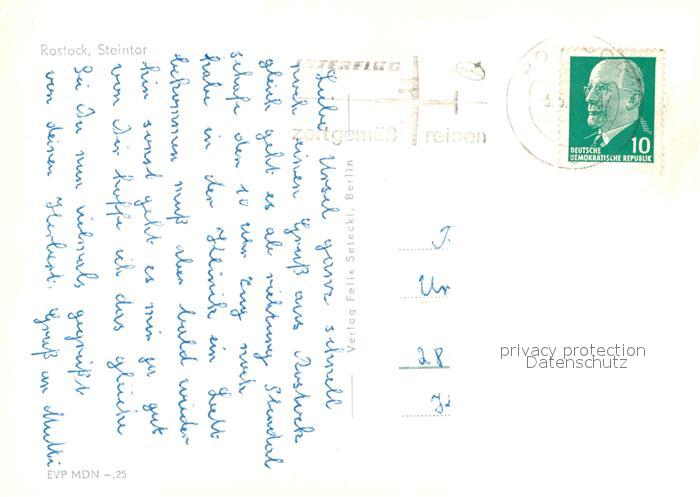 Rostock, Steintor
INTERFLUG
zeitgemäß reisen
DEUTSCHE
DEMOKRATISCHE REPUBLIK
10
Liebe Ursel ganz schnell
noch einen Gruß aus Rostock
gleich geht es ab richtung Stendal
schafe den 10 Uhr Zug noch
habe in der Klinik ein Bett
bekommen muß aber bald wieder
hin sonst geht es mir ja gut
von Dir hoffe ich das gleiche
Sei Du nun vielmals gegrüßt
von deinen Herbert. Gruß an Mutti
Verlag Felix Setecki, Berlin
28
EVP MDN -,25
privacy protection
Datenschutz